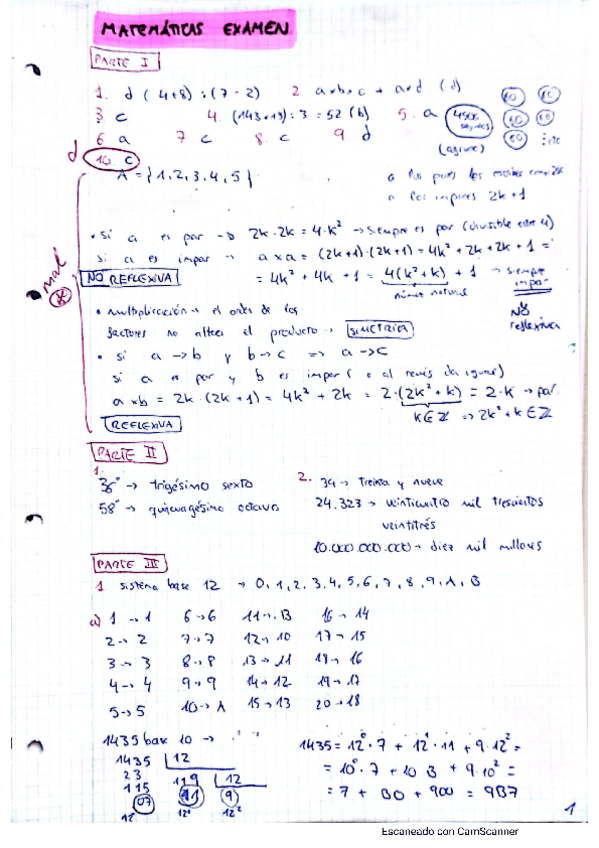 MATEMÁTICAS EXAMEN
PARTE I
1. d (4+8) : (7-2) 2. a×b×c + a×d (d)
3 c 4. (143+13) : 3 = 52 (b) 5. a 4506
6 a 7 c 8. c 9 d (agrupe) 60 60 60 60 60 ⋮etc
d 10. c
A = {1,2,3,4,5}
a los pares los 2k
a los impares 2k+1
mal
• si a es par → 2k·2k = 4·k² → siempre es par (divisible entre 4)
si a es impar → a×a = (2k+1)·(2k+1) = 4k² + 2k + 2k + 1 =
NO REFLEXIVA = 4k² + 4k + 1 = 4(k²+k) + 1 → siempre impar
número natural
NO reflexiva
• multiplicación → el orden de los
factores no altera el producto → SIMETRÍA
• si a → b y b → c => a → c
si a es par y b es impar (o al revés da igual)
a×b = 2k·(2k+1) = 4k² + 2k = 2·(2k²+k) = 2·k → par
k∈ℤ => 2k²+k∈ℤ
REFLEXIVA
PARTE II
1.
36° → trigésimo sexto
58° → quincuagésimo octavo
2. 39 → Treinta y nueve
24.323 → veinticuatro mil trescientos
veintitrés
10.000.000.000 → diez mil millones
PARTE III
1 sistema base 12 → 0,1,2,3,4,5,6,7,8,9,A,B
a) 1 → 1 6 → 6 11 → B 16 → 14
2 → 2 7 → 7 12 → 10 17 → 15
3 → 3 8 → 8 13 → 11 18 → 16
4 → 4 9 → 9 14 → 12 19 → 17
5 → 5 10 → A 15 → 13 20 → 18
1435 base 10 →
1435 12
23 119 12
115 11 9
07
12⁰ 12¹ 12²
1435 = 12⁰·7 + 12¹·11 + 9·12² =
= 10⁰·7 + 10 B + 9·10² =
= 7 + B0 + 900 = 9B7
1
Escaneado con CamScanner